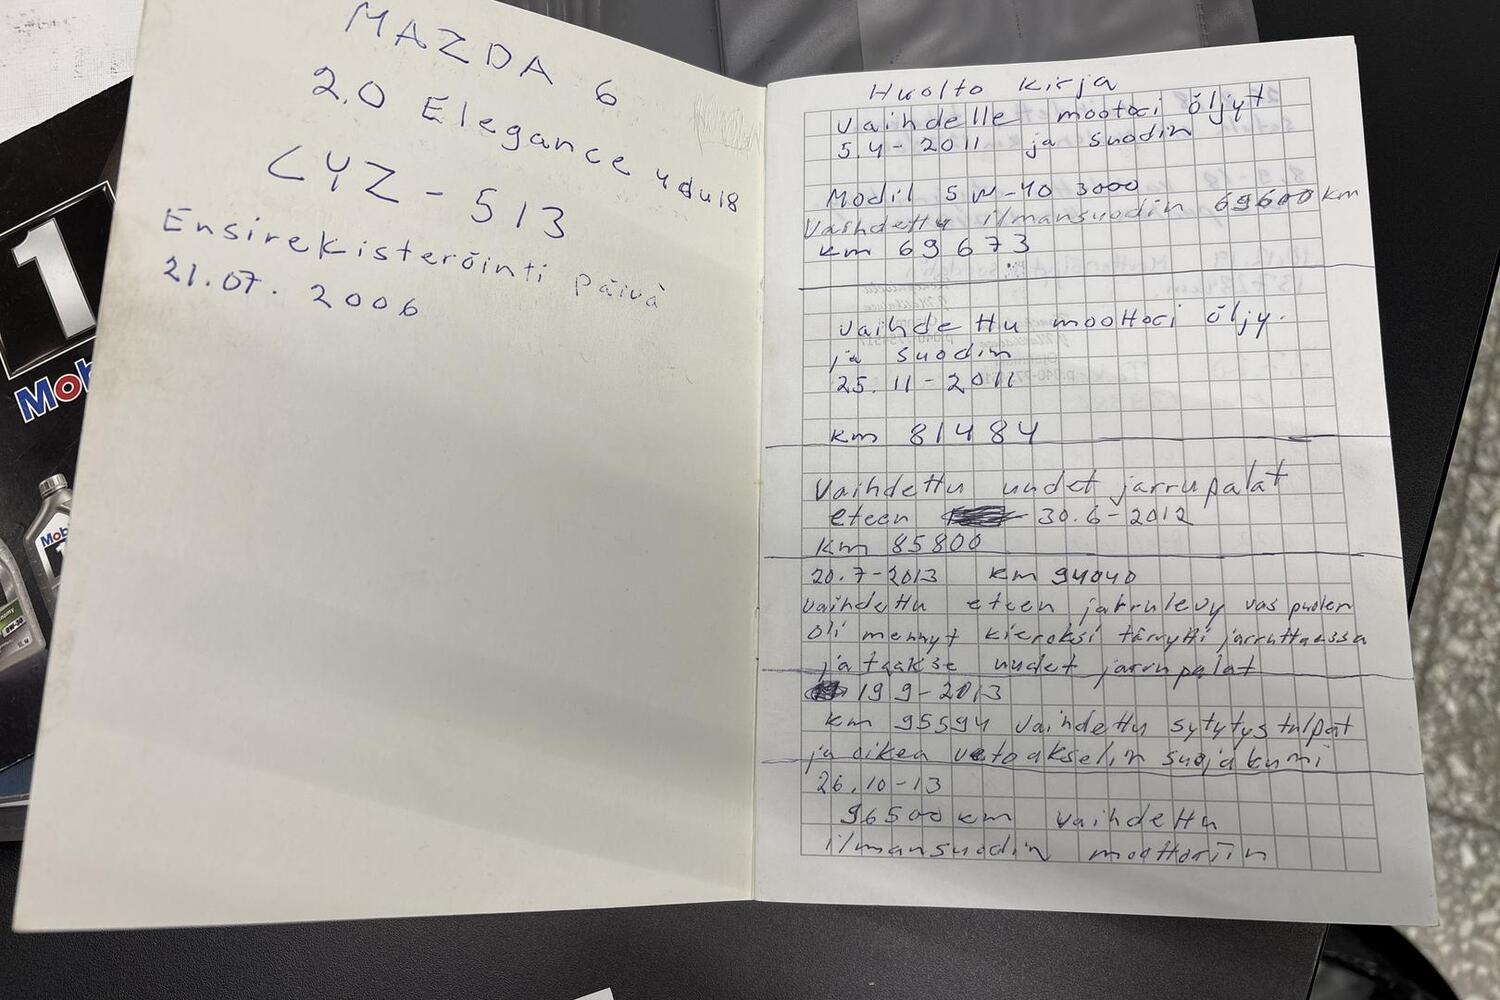 MAZDA 6
2.0 Elegance 4du18
CYZ-513
Ensirekisteröinti päivä
21.07. 2006
Huolto kirja
Vaihdelle mootoci öljyt
5.4-2011 ja suodin
Modil 5 W-40 3000
Vaihdettu ilmansuodin 69600 km
km 69673
vaihdettu moottoci öljy.
ja suodin
25.11-2011
km 81484
Vaihdettu uudet jarrupalat
eteen 30.6-2012
km 85800
20.7-2013 km 94040
vaihdettu eteen jarrulevy vas puolen
oli mennyt kieroksi tärytti jarruttaessa
ja taakse uudet jarrupalat
19 9-2013
km 95594 vaihdettu sytytystulpat
ja oikea vetoakselin suojakumi
26.10-13
96500 km vaihdettu
ilmansuodin moottoriin
1
Mob
Mob